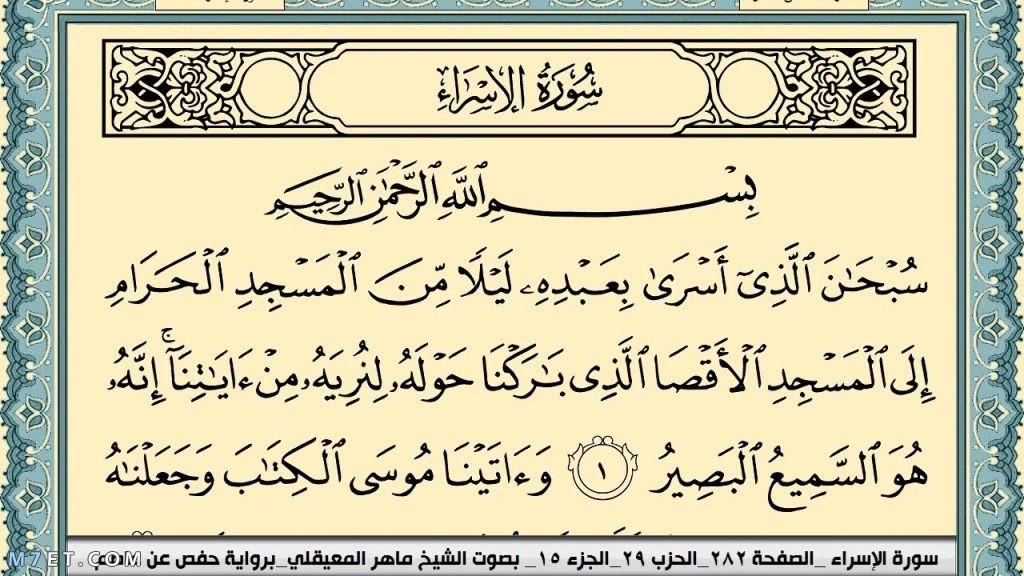 سُورَةُ الإِسْرَاءِ
بِسْمِ ٱللَّهِ ٱلرَّحْمَٰنِ ٱلرَّحِيمِ
سُبْحَٰنَ ٱلَّذِىٓ أَسْرَىٰ بِعَبْدِهِۦ لَيْلًا مِّنَ ٱلْمَسْجِدِ ٱلْحَرَامِ
إِلَى ٱلْمَسْجِدِ ٱلْأَقْصَا ٱلَّذِى بَٰرَكْنَا حَوْلَهُۥ لِنُرِيَهُۥ مِنْ ءَايَٰتِنَآ ۚ إِنَّهُۥ
هُوَ ٱلسَّمِيعُ ٱلْبَصِيرُ ١ وَءَاتَيْنَا مُوسَى ٱلْكِتَٰبَ وَجَعَلْنَٰهُ
سورة الإسراء _الصفحة ٢٨٢_الحزب ٢٩_الجزء ١٥_ بصوت الشيخ ماهر المعيقلي_برواية حفص عن
M7ET.COM